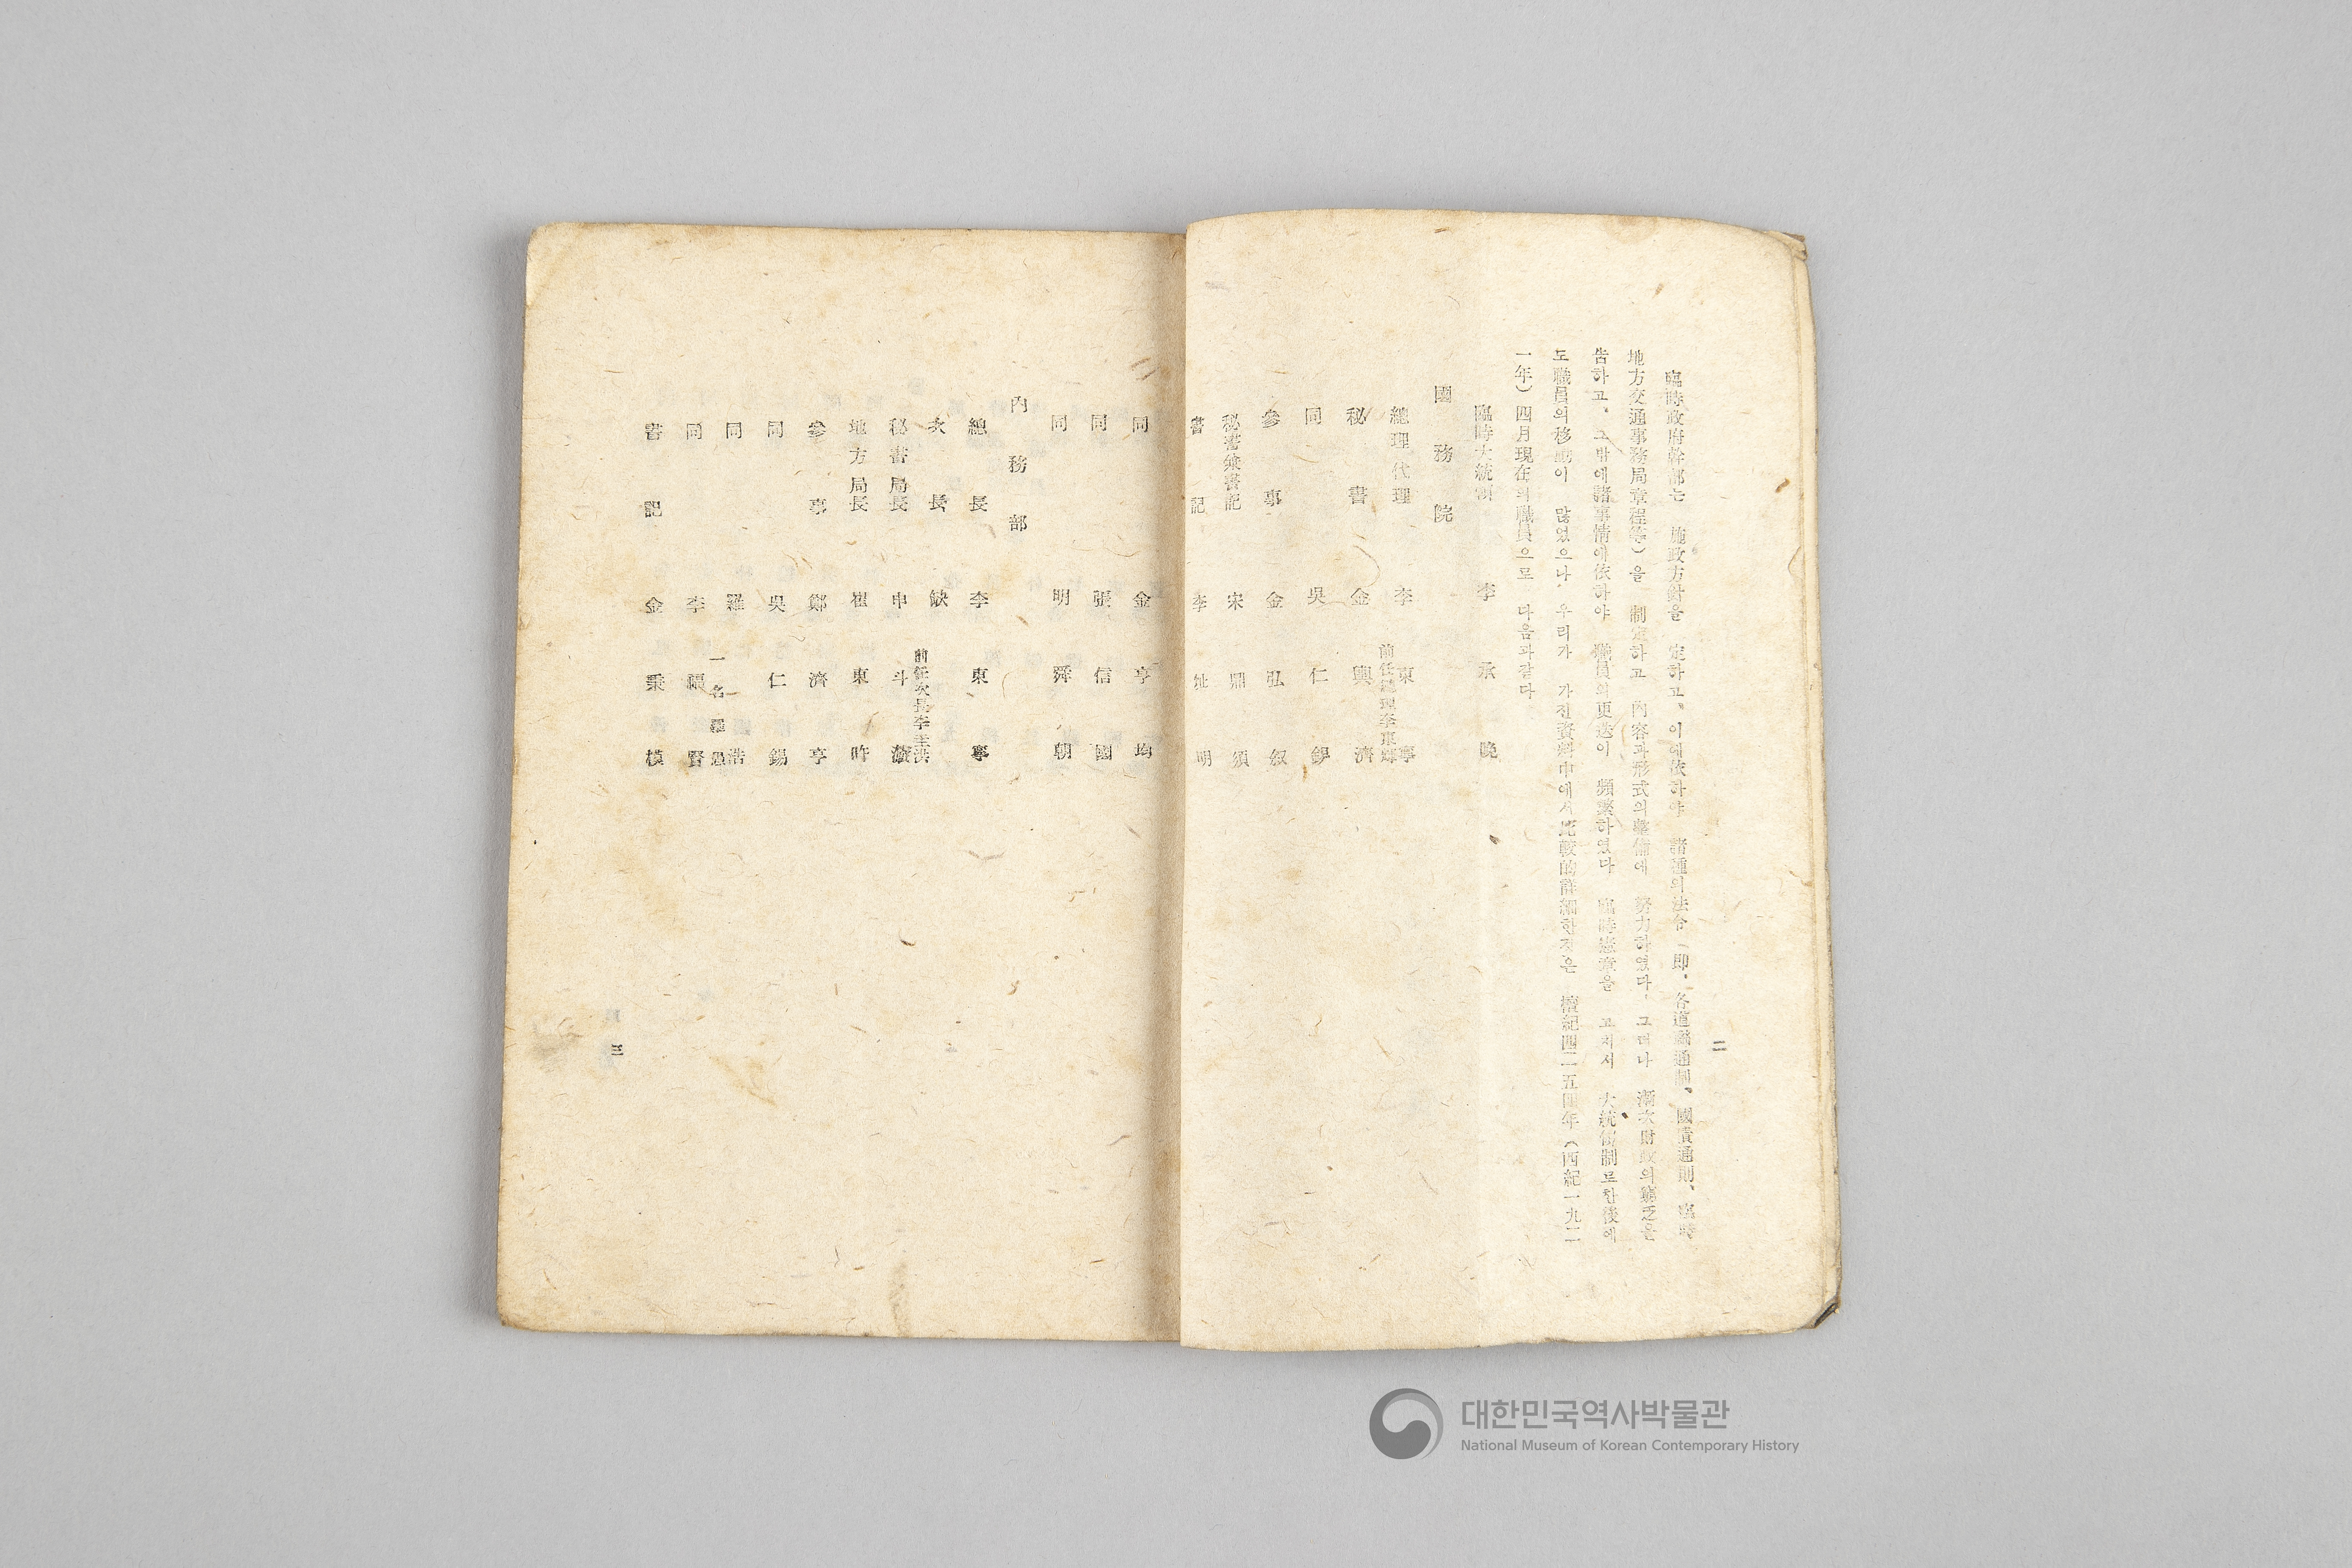 二
臨時政府幹部는 施政方針을 定하고, 이에依하야 諸種의法令（即, 各道聯通制, 國債通則, 臨時
地方交通事務局章程等）을 制定하고 內容과形式의整備에 努力하였다. 그러나 漸次財政의窮乏을
告하고, 그밖에諸事情에依하야 職員의更迭이 頻繁하였다 臨時憲章을 고치서 大統領制로한後에
도職員의移動이 많었으나, 우리가 가진資料中에서比較的詳細한것은 檀紀四二五四年（西紀一九二
一年）四月現在의職員으로 다음과같다
臨時大統領 李承晩
國務院
總理代理 李東寧
前任總理李東輝
秘書 金興濟
同 吳仁錫
參事 金弘叙
秘書兼書記 宋鼎須
書記 李址明
同 金亨均
同 張信國
同 明舜朝
內務部
總長 李東寧
次長 缺
前任次長李圭洪
秘書局長 申斗
地方局長 崔東旿
參事 鄭濟亨
同 吳仁錫
同 羅浩
一名羅愚
同 李福賢
書記 金秉模
三
대한민국역사박물관
National Museum of Korean Contemporary History